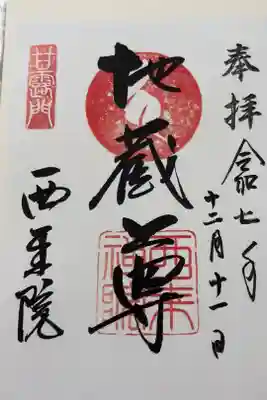 奉拝 令和七年
十二月十一日
地蔵尊
甘露門
西来院